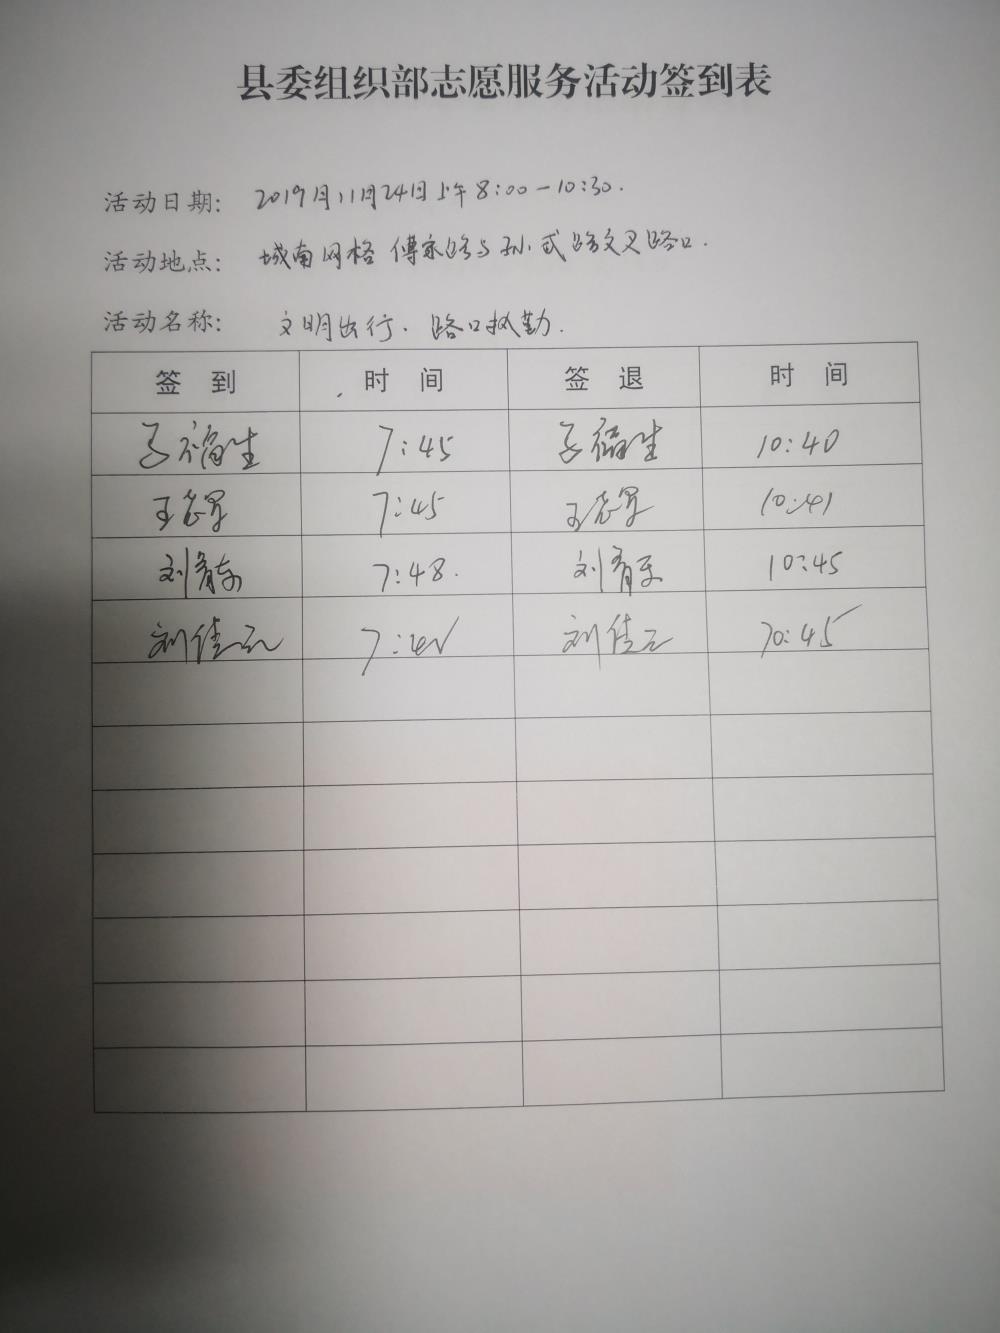 县委组织部志愿服务活动签到表
活动日期： 2019月11月24日上午8:00-10:30.
活动地点： 城南网格 傅家路与孙武路交叉路口.
活动名称： 文明出行.路口执勤.
签 到 时 间 签 退 时 间
7:45 10:40
7:45 10:41
刘 7:48. 刘 10:45
刘佳 7: 刘佳 10:45